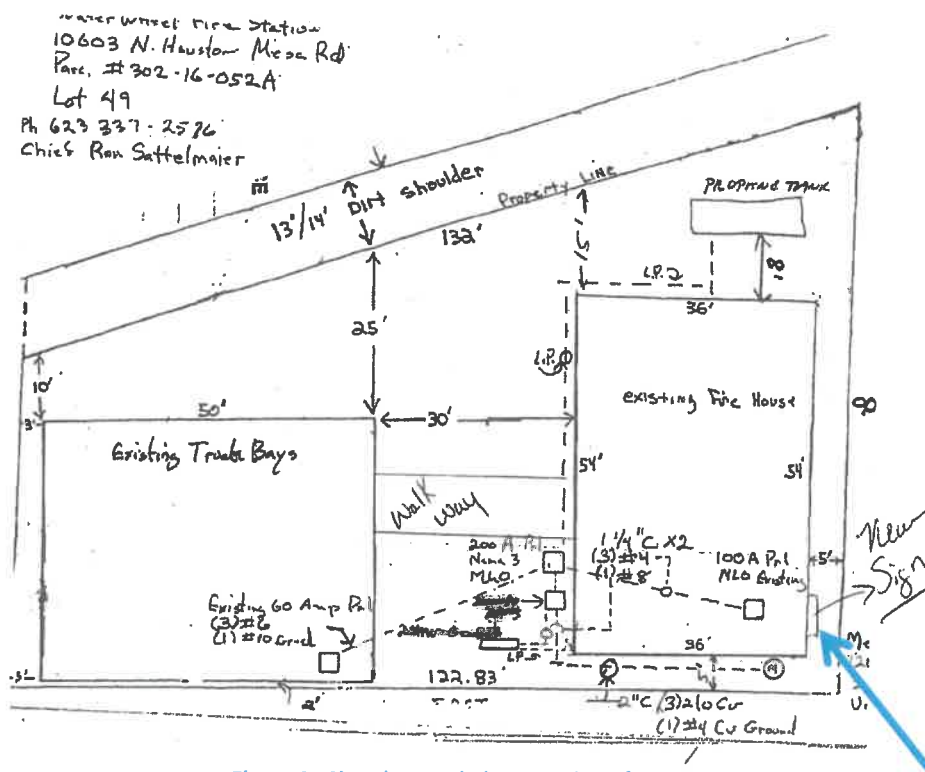 Fire Station
10603 N. Houston Mesa Rd
Parc. # 302-16-052A
Lot 49
Ph 623 337-2576
Chief Ron Sattelmaier
13'/14' Dirt Shoulder
Property Line
132'
15'
PROPANE TANK
18
L.P.
36'
25'
10'
L.P.
existing Fire House
50'
30'
3'
Existing Truck Bays
54'
54'
Walk Way
200 A Pnl
Nema 3
MLO
1 1/4" C X2
(3) #4
(1) #8
100 A Pnl
MLO Existing
5'
New Sign
Existing 60 Amp Pnl
(3) #6
(1) #10 Grnd
L.P.
36'
122.83'
2'
2"C (3) 2/0 Cu
(1) #4 Cu Ground